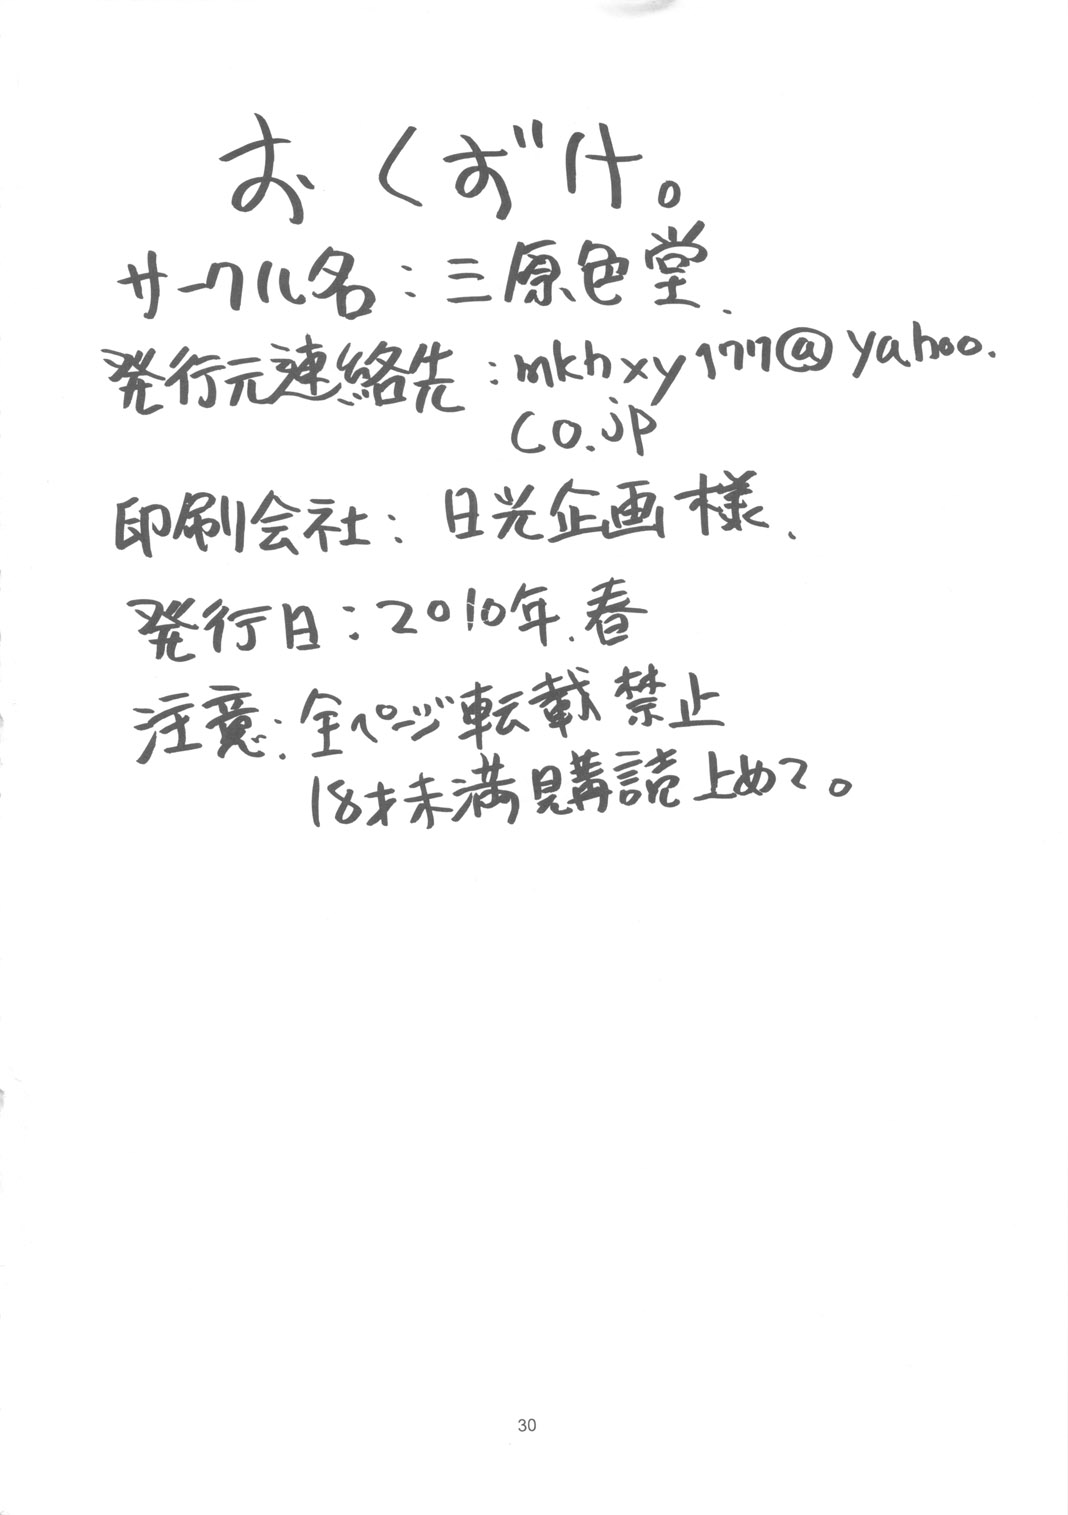 おくずけ。
サークル名:三原色堂.
発行元連絡先:mkhxy177@yahoo.
co.jp
印刷会社:日光企画様.
発行日:2010年.春
注意:全ページ転載禁止
18才未満見購読止めて。
30